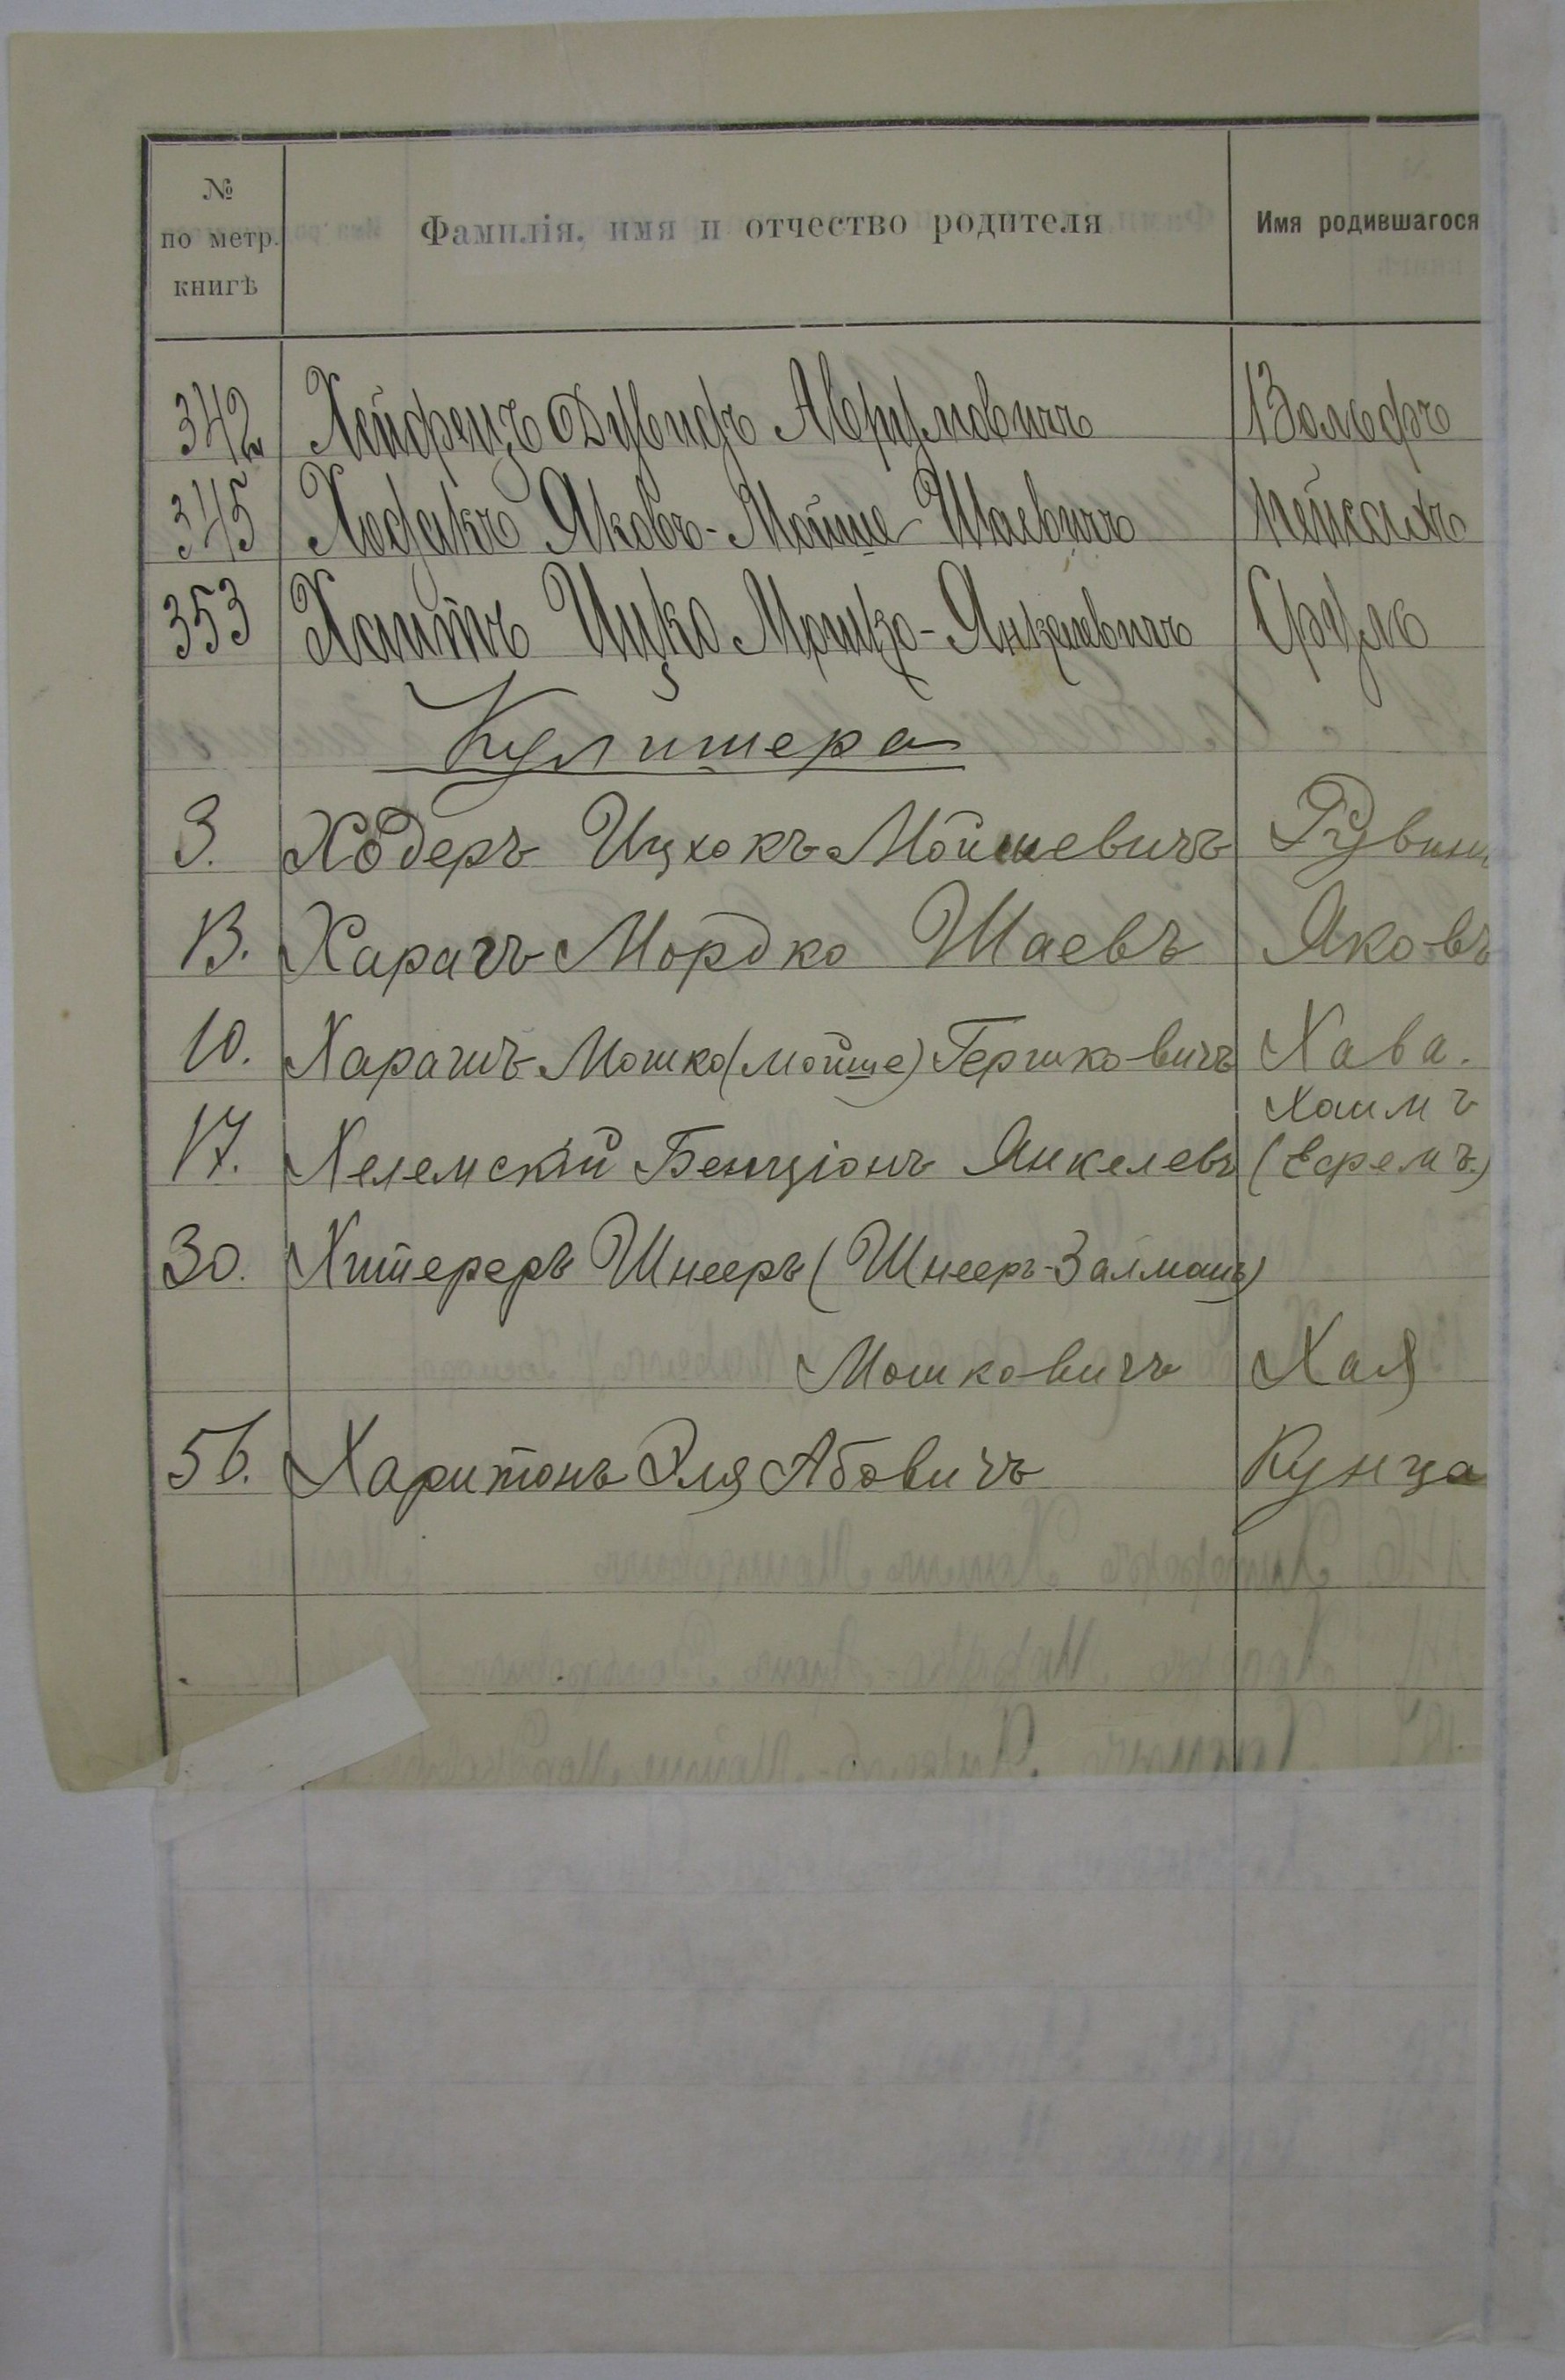 № по метр. книгѣ | Фамилія, имя и отчество родителя | Имя родившагося
342 | Хейфецъ Дувидъ Аврумовичъ | Вольфъ
345 | Ходакъ Яковъ-Мойше Шаевичъ | Пейсахъ
353 | Хаитъ Ицко Мошко-Янкелевичъ | Сруль
Кулишера
3. | Ходеръ Ицхокъ Мойшевичъ | Рувин
13. | Харачъ Мордко Шаевъ | Яковъ
10. | Харашъ Мошко (Мойше) Гершковичъ | Хава.
Хаимъ
17. | Хелемскій Бенціонъ Янкелевъ | (Ефремъ)
30. | Хитереръ Шнееръ (Шнееръ-Залманъ)
Мошковичъ | Хая
56. | Харитонъ Эля Абовичъ | Кунца